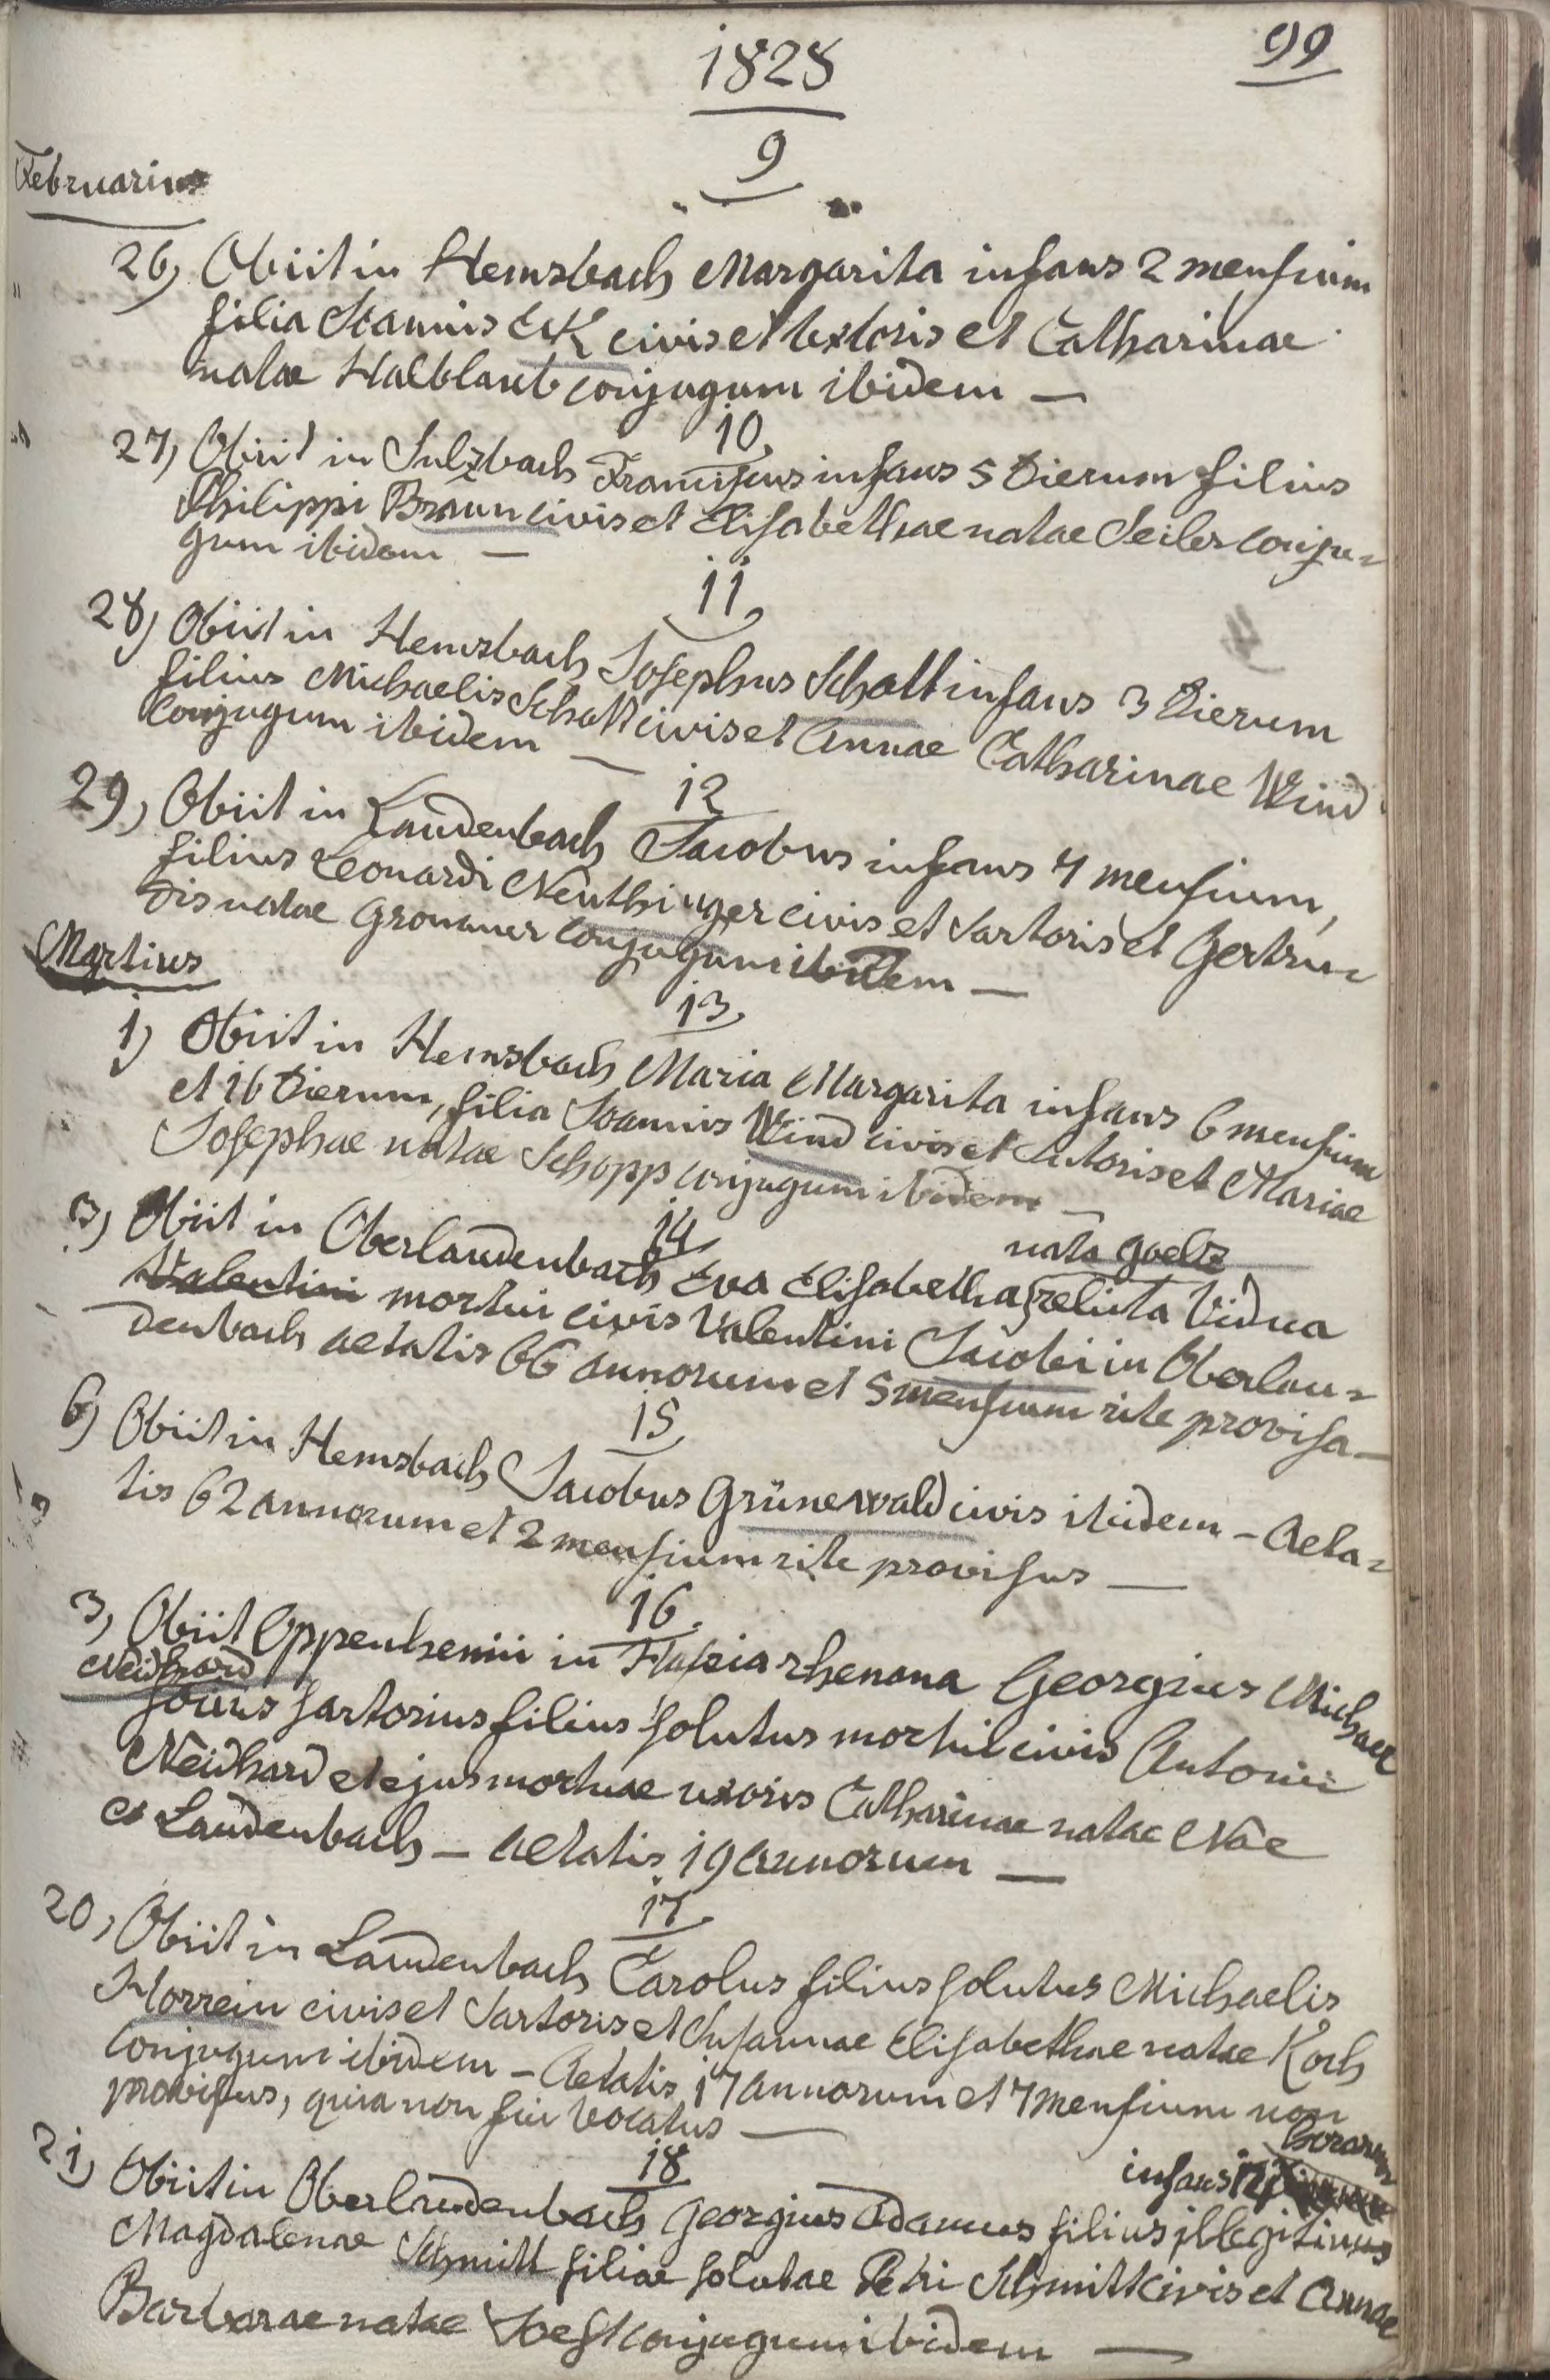 99
1828
9
Februarius
26, Obiit in Hemsbach Margarita infans 2 mensium
filia Joannis Ek civis et textoris et Catharinae
natae Halblaub conjugum ibidem —
10,
27, Obiit in Sulzbach Franciscus infans 5 dierum filius
Philippi Braun civis et Elisabethae natae Seiler conju=
gum ibidem —
11,
28, Obiit in Hemsbach Josephus Schott infans 3 dierum
filius Michaelis Schott civis et Annae Catharinae Wind
conjugum ibidem —
12
29, Obiit in Laudenbach Jacobus infans 4 mensium,
filius Leonardi Neuthinger civis et sartoris et Gertru=
dis natae Gronauer conjugum ibidem —
Martius
13,
1) Obiit in Hemsbach Maria Margarita infans 6 mensium
et 16 dierum, filia Joannis Wind civis et sutoris et Mariae
Josephae natae Schopp conjugum ibidem —
14
nata Goelz
3, Obiit in Oberlaudenbach Eva Elisabetha relicta vidua
Valentini mortui civis Valentini Jacobi in Oberlau=
denbach aetatis 66 annorum et 5 mensium rite provisa —
15
6) Obiit in Hemsbach Jacobus Grünewald civis ibidem — Aeta=
tis 62 annorum et 2 mensium rite provisus —
16.
3, Obiit Oppenhemii in Hassia rhenana Georgius Michael
Neidhard
socius sartorius filius solutus mortui civis Antonii
Neidhard et ejus mortuae uxoris Catharinae natae Nåe
es Laudenbach — aetatis 19 annorum —
17
20, Obiit in Laudenbach Carolus filius solutus Michaelis
Horrein civis et sartoris et Susannae Elisabethae natae Koch
conjugum ibidem — Aetatis 17 annorum et 7 mensium non
provisus, quia non fui vocatus —
18
horarum
infans 12
21, Obiit in Oberlaudenbach Georgius Adamus filius illegitimus
Magdalenae Schmitt filiae solutae Petri Schmitt civis et Annae
Barbarae natae conjugum ibidem —